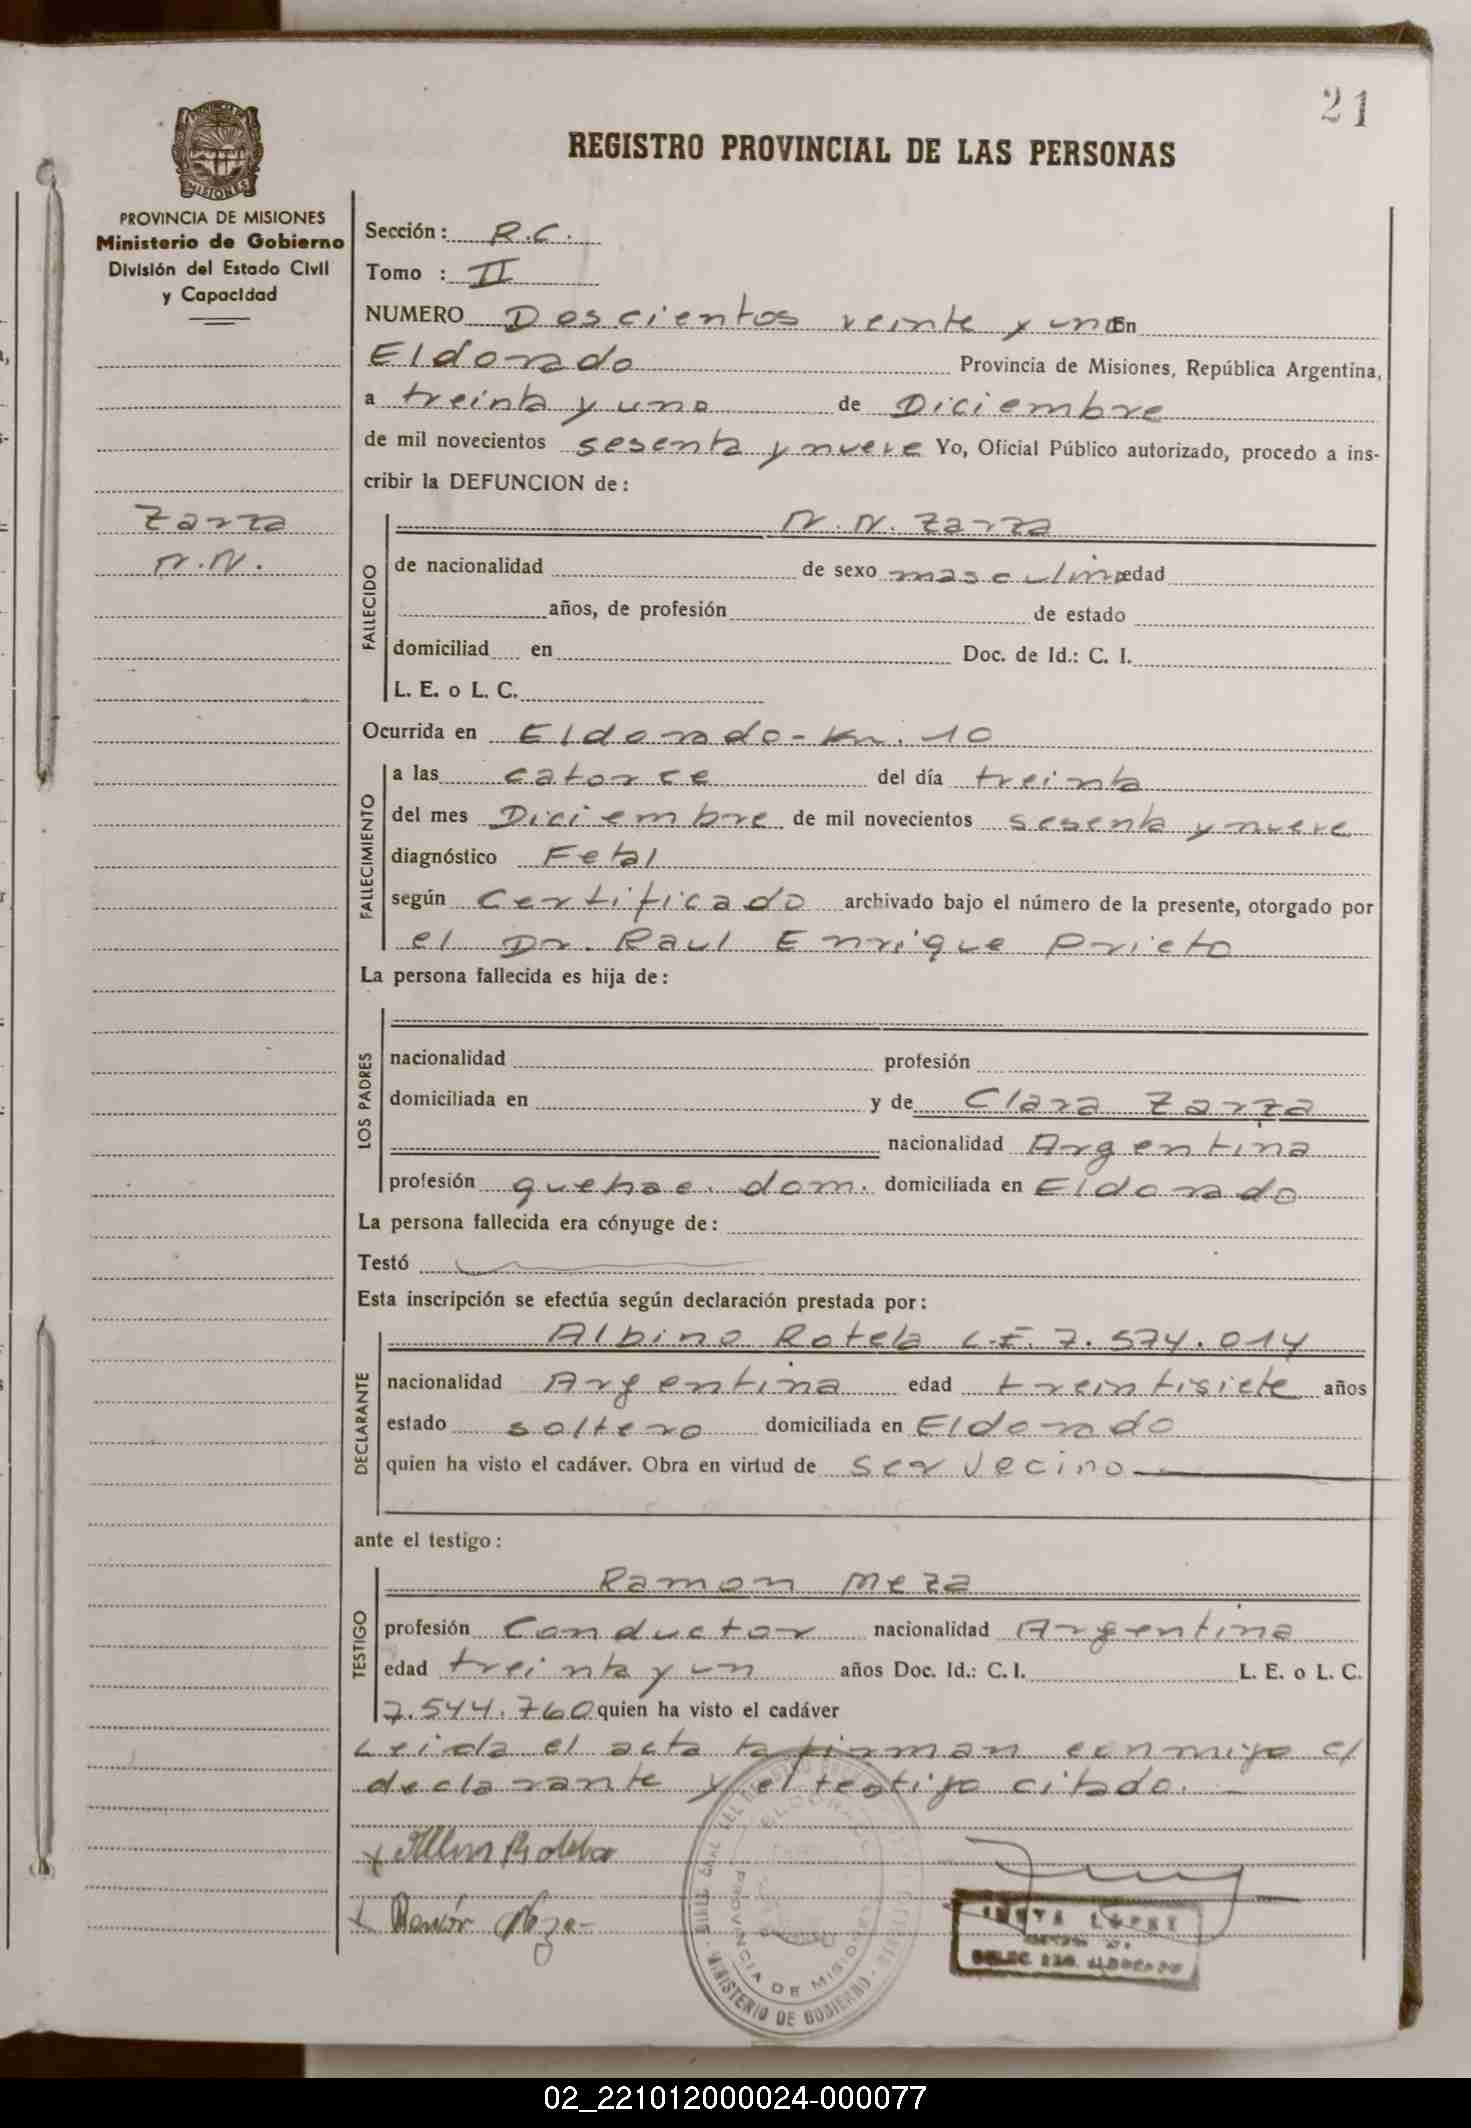 21
REGISTRO PROVINCIAL DE LAS PERSONAS
MISIONES
PROVINCIA DE MISIONES
Ministerio de Gobierno
División del Estado Civil
y Capacidad
Zarza
N.N.
Sección: R.C.
Tomo : II
NUMERO Doscientos veinte y uno En
Eldorado Provincia de Misiones, República Argentina,
a treinta y uno de Diciembre
de mil novecientos sesenta y nueve Yo, Oficial Público autorizado, procedo a ins-
cribir la DEFUNCION de:
FALLECIDO
N.N. Zarza
de nacionalidad de sexo masculino edad
años, de profesión de estado
domiciliad en Doc. de Id.: C. I.
L. E. o L. C.
Ocurrida en Eldorado-Km. 10
FALLECIMIENTO
a las catorce del día treinta
del mes Diciembre de mil novecientos sesenta y nueve
diagnóstico Fetal
según Certificado archivado bajo el número de la presente, otorgado por
el Dr. Raul Enrique Prieto
La persona fallecida es hija de:
LOS PADRES
nacionalidad profesión
domiciliada en y de Clara Zarza
nacionalidad Argentina
profesión quehac. dom. domiciliada en Eldorado
La persona fallecida era cónyuge de:
Testó
Esta inscripción se efectúa según declaración prestada por:
DECLARANTE
Albino Rotela L.E. 7.574.014
nacionalidad Argentina edad treintisiete años
estado soltero domiciliada en Eldorado
quien ha visto el cadáver. Obra en virtud de ser vecino
ante el testigo:
TESTIGO
Ramon Meza
profesión Conductor nacionalidad Argentina
edad treinta y un años Doc. Id.: C. I. L. E. o L. C.
7.544.760 quien ha visto el cadáver
Leida el acta la firman conmigo el
declarante y el testigo citado.
Ramón Meza
PROVINCIA DE MISIONES
MINISTERIO DE GOBIERNO
02_221012000024-000077